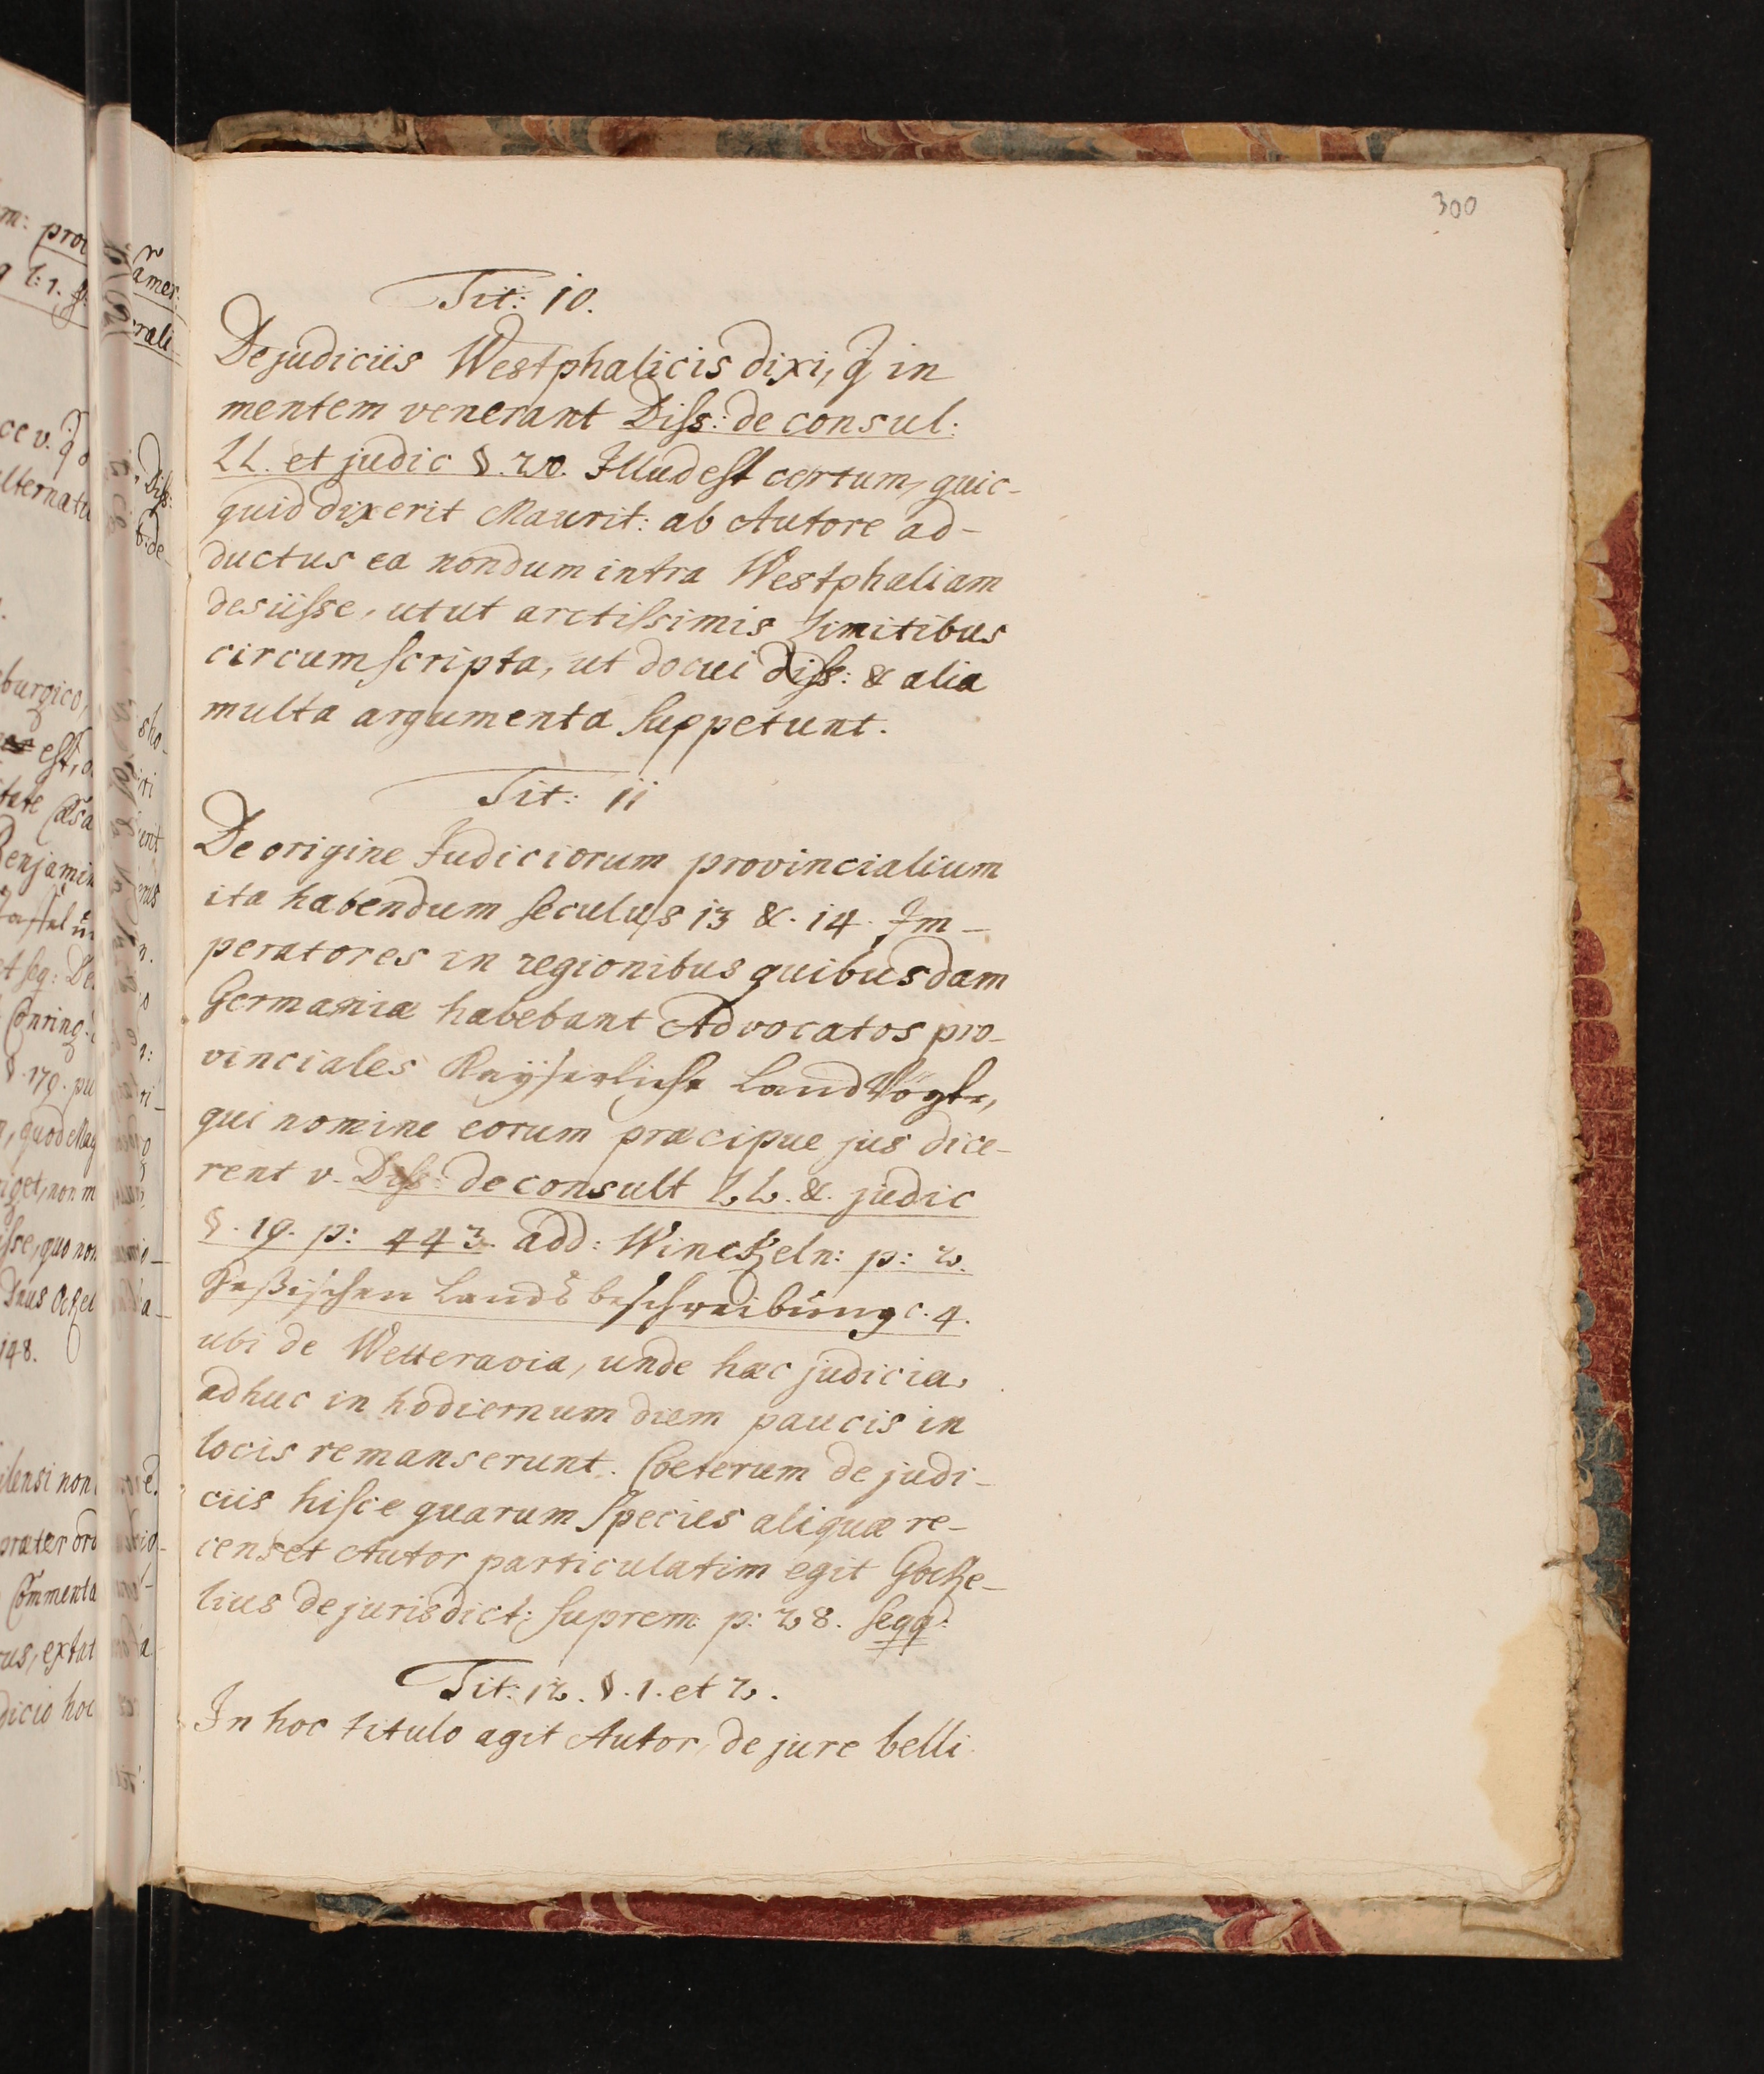 300
Tit: 10.
De judiciis Westphalicis dixi, q̃ in
mentem venerant Diss: de consul:
LL. et judic §. 20. Illud est certum, quic-
quid dixerit Maurit: ab Autore ad-
ductus ea nondum intra Westphaliam
desiisse, utut arctissimis limitibus
circumscripta, ut docui diss: & alia
multa argumenta suppetunt.
Tit: 11
De origine Judiciorum provincialium
ita habendum seculus 13 &. 14. Im-
peratores in regionibus quibusdam
Germaniæ habebant Advocatos pro-
vinciales Kayserliche LandVögte,
qui nomine eorum præcipue jus dice-
rent v. Diss: de consult LL. &. judic
§. 19. p: 443. add: Winckeln: p: 2.
Heßischen Lands beschreibung c. 4.
ubi de Wetteravia, unde hæc judicia,
adhuc in hodiernum diem paucis in
locis remanserunt. Cœterum de judi-
ciis hisce quarum species aliquæ re-
censet Autor particulatim egit Gocke-
lius de jurisdict: suprem: p: 28. seqq:
Tit: 12. §. 1. et 2.
In hoc titulo agit Autor, de jure belli